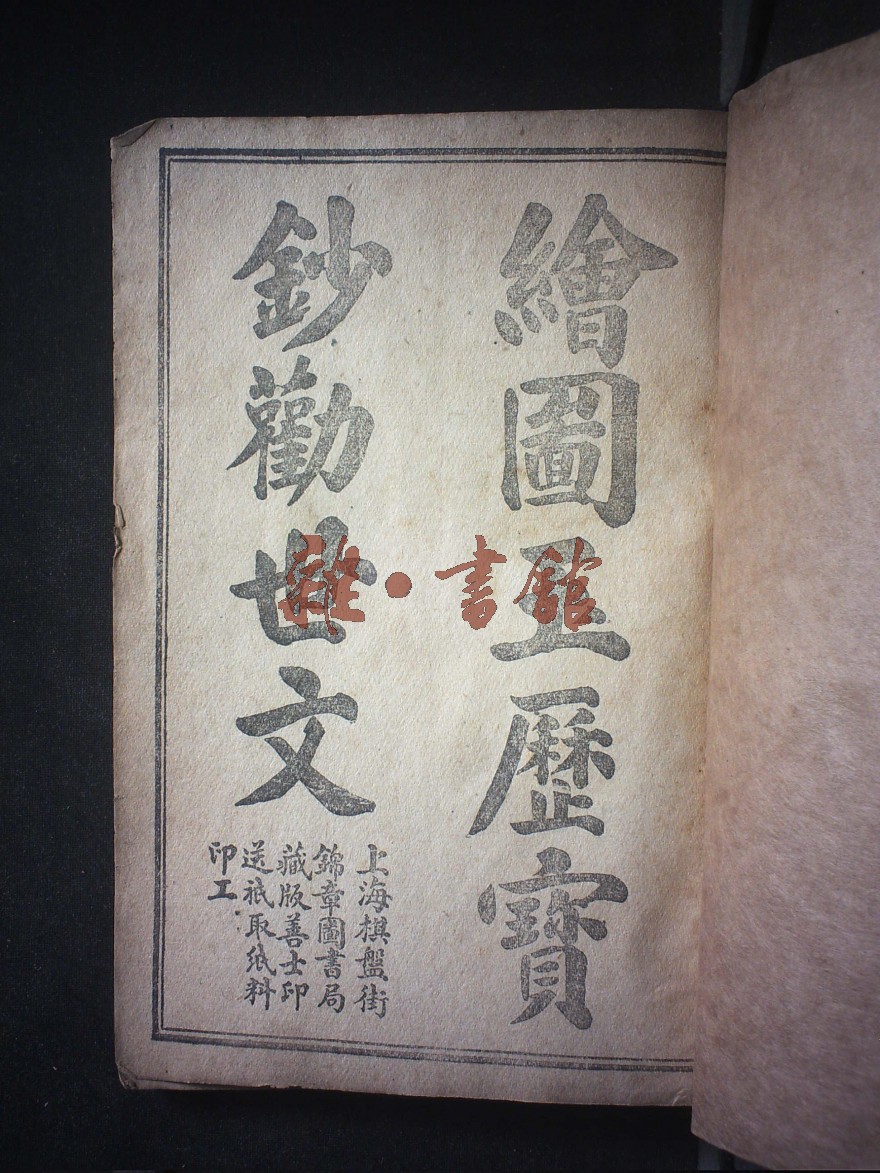 繪圖玉歷寶
鈔勸世文
上海棋盤街
錦章圖書局
藏版善士印
送祗取紙料
印工
雜·書館